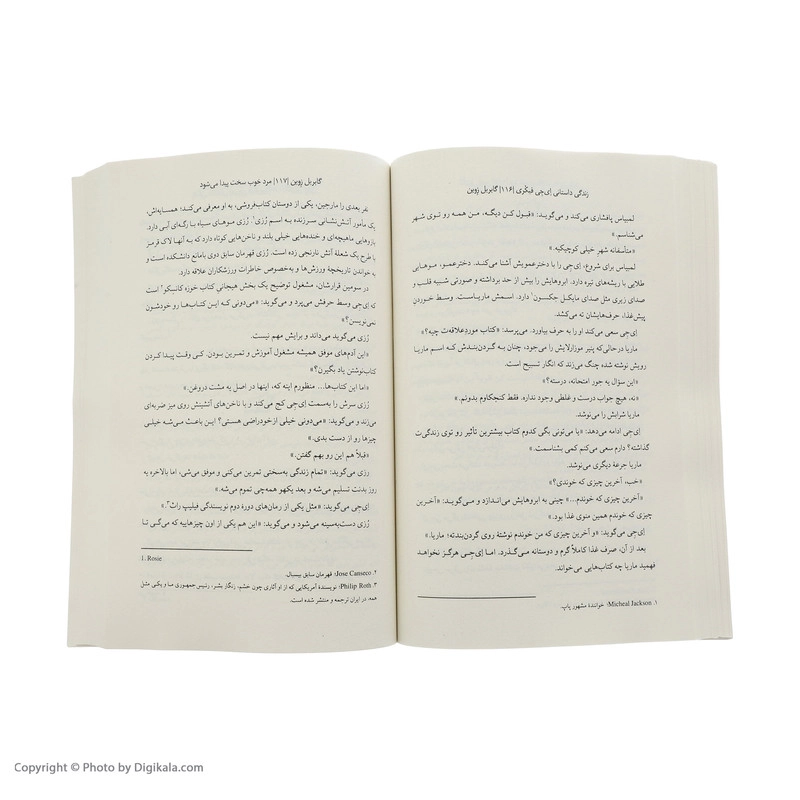 زندگی داستانی اِی‌جی فیکْری |۱۱۶| گابریل زِوین
لمبیاس پافشاری می‌کند و می‌گوید: «قبول کن دیگه، من همه رو توی شهر
می‌شناسم.»
«متأسفانه شهرِ خیلی کوچیکیه.»
لمبیاس برای شروع، اِی‌جی را با دخترعمویش آشنا می‌کند. دخترعمو، موهایی
طلایی با ریشه‌های تیره دارد. ابروهایش را بیش از حد برداشته و صورتی شبیه قلب و
صدای زیری مثل صدای مایکل جکسون۱ دارد. اسمش ماریاست. وسط خوردن
پیش‌غذا، حرف‌هایشان ته می‌کشد.
اِی‌جی سعی می‌کند او را به حرف بیاورد. می‌پرسد: «کتاب موردعلاقه‌ت چیه؟»
ماریا درحالی‌که پنیر موزارلایش را می‌جود، چنان به گردن‌بندش که اسم ماریا
رویش نوشته شده چنگ می‌زند که انگار تسبیح است.
«این سؤال یه جور امتحانه، درسته؟»
«نه، هیچ جواب درست و غلطی وجود نداره. فقط کنجکاوم بدونم.»
ماریا شرابش را می‌نوشد.
اِی‌جی ادامه می‌دهد: «یا می‌تونی بگی کدوم کتاب بیشترین تأثیر رو توی زندگی‌ت
گذاشته؟ دارم سعی می‌کنم کمی بشناسمت.»
ماریا جرعهٔ دیگری می‌نوشد.
«خب، آخرین چیزی که خوندی؟»
«آخرین چیزی که خوندم...» چینی به ابروهایش می‌اندازد و می‌گوید: «آخرین
چیزی که خوندم همین منوی غذا بود.»
اِی‌جی می‌گوید: «و آخرین چیزی که من خوندم نوشتهٔ روی گردن‌بندته؛ ماریا.»
بعد از آن، صرف غذا کاملاً گرم و دوستانه می‌گذرد. اما اِی‌جی هرگز نخواهد
فهمید ماریا چه کتاب‌هایی می‌خواند.
۱. Micheal Jackson: خوانندهٔ مشهور پاپ.
گابریل زِوین |۱۱۷| مرد خوب سخت پیدا می‌شود
نفر بعدی را مارجین، یکی از دوستان کتاب‌فروشی، به او معرفی می‌کند؛ همسایه‌اش،
یک مأمور آتش‌نشانی سرزنده به اسم رُزی۱. رُزی موهای سیاه با رگه‌ای آبی دارد.
بازوهایی ماهیچه‌ای و خنده‌هایی خیلی بلند و ناخن‌هایی کوتاه دارد که به آنها لاک قرمز
با طرح یک شعلهٔ آتش نارنجی زده است. رُزی قهرمان سابق دوی بامانع دانشکده است و
به خواندن تاریخچهٔ ورزش‌ها و به‌خصوص خاطرات ورزشکاران علاقه دارد.
در سومین قرارشان، مشغول توضیح یک بخش هیجانی کتاب خوزه کانسکو۲ است
که اِی‌جی وسط حرفش می‌پرد و می‌گوید: «می‌دونی که این کتاب‌ها رو خودشون
نمی‌نویسن؟»
رُزی می‌گوید می‌داند و برایش مهم نیست.
«این آدم‌های موفق همیشه مشغول آموزش و تمرین بودن. کی وقت پیدا کردن
کتاب‌نوشتن یاد بگیرن؟»
«اما این کتاب‌ها... منظورم اینه که، اینها در اصل یه مشت دروغن.»
رُزی سرش را به‌سمت اِی‌جی کج می‌کند و با ناخن‌های آتشینش روی میز ضربه‌ای
می‌زند و می‌گوید: «می‌دونی خیلی ازخودراضی هستی؟ این باعث می‌شه خیلی
چیزها رو از دست بدی.»
«قبلاً هم این رو بهم گفتن.»
رزی می‌گوید: «تمام زندگی به‌سختی تمرین می‌کنی و موفق می‌شی، اما بالاخره یه
روز بدنت تسلیم می‌شه و بعد یکهو همه‌چی تموم می‌شه.»
اِی‌جی می‌گوید: «مثل یکی از رمان‌های دورهٔ دوم نویسندگی فیلیپ راث۳.»
رُزی دست‌به‌سینه می‌شود و می‌گوید: «این هم یکی از اون چیزهاییه که می‌گی تا
1. Rosie
۲. Jose Canseco: قهرمان سابق بیسبال.
۳. Philip Roth: نویسندهٔ آمریکایی که از او آثاری چون خشم، زنگار بشر، رئیس‌جمهوری ما و یکی مثل
همه، در ایران ترجمه و منتشر شده است.
Copyright © Photo by Digikala.com